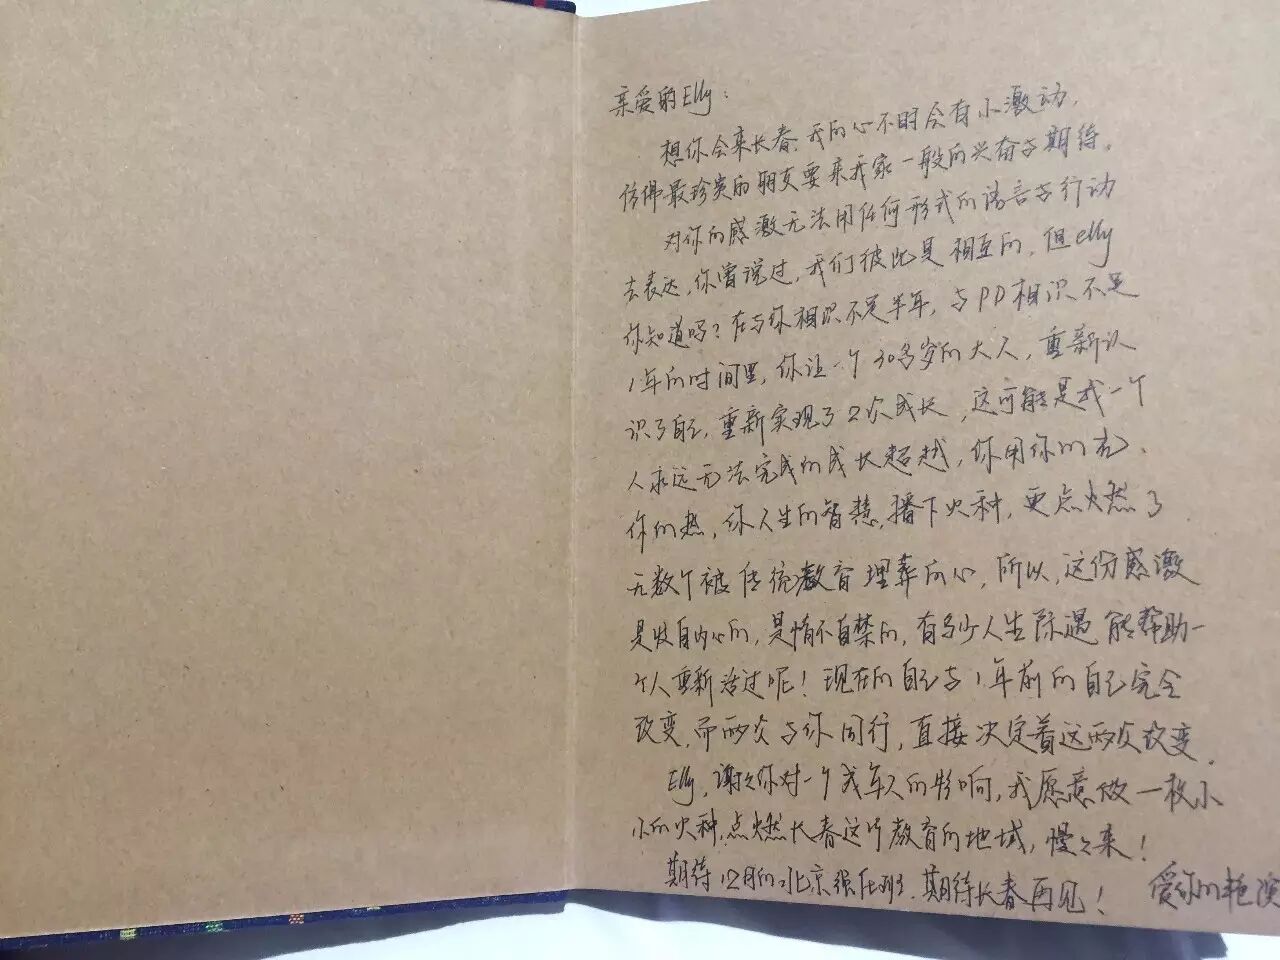 亲爱的Elly：
想你会来长春，我的心不时会有小激动，
仿佛最珍贵的朋友要来我家一般的兴奋与期待。
对你的感激无法用任何形式的语言与行动
去表达，你曾说过，我们彼此是相互的，但elly
你知道吗？在与你相识不足半年，与PD相识不足
1年的时间里，你让一个30多岁的大人，重新认
识了自己，重新实现了2次成长，这可能是我一个
人永远无法完成的成长超越，你用你的光、
你的热，你人生的智慧，播下火种，更点燃了
无数个被传统教育埋葬的心，所以，这份感激
是发自内心的，是情不自禁的，有多少人生际遇能帮助一
个人重新活过呢！现在的自己与1年前的自己完全
改变，而两次与你同行，直接决定着这两次改变。
Elly，谢谢你对一个成年人的影响，我愿意做一枚小
小的火种，点燃长春这片教育的地域，慢々来！
期待12月的北京，期待长春再见！
爱你的艳